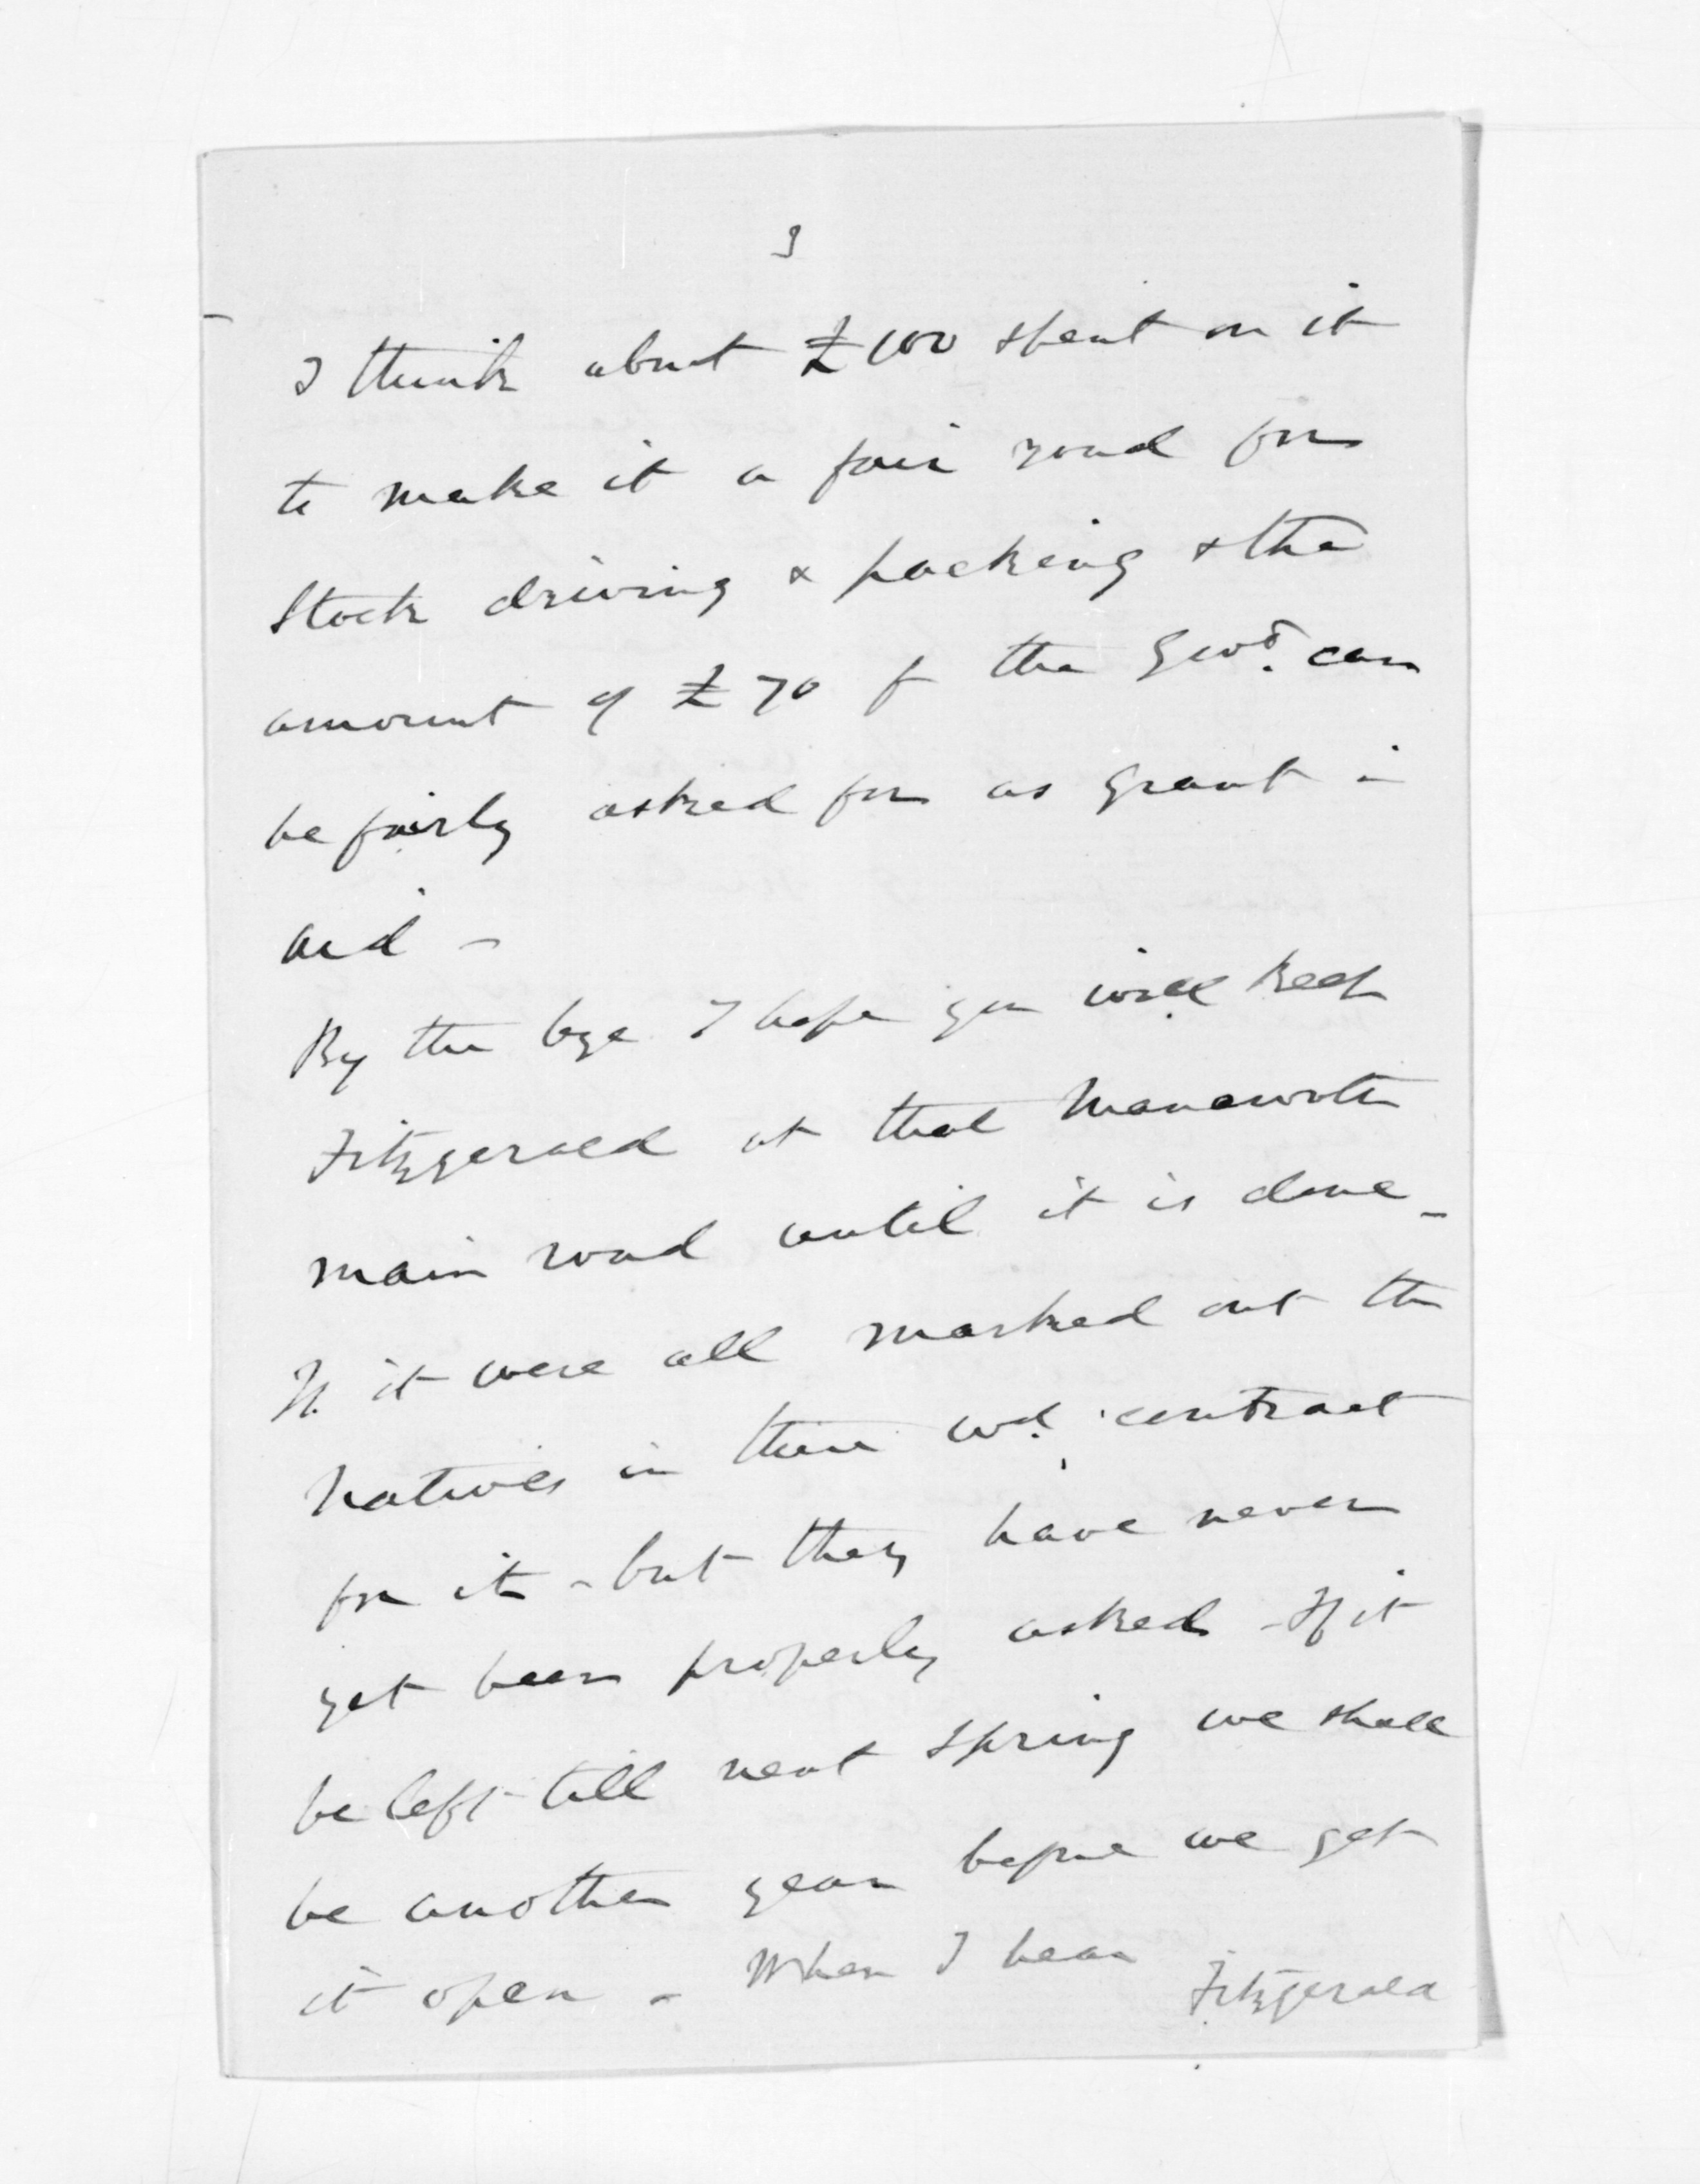 3
I think about £100 spent on it
to make it a fair road for
Stock driving & packing & the
amount of £70 f the Govt. can
be fairly asked for as grant in
aid -
By the bye I hope you will keep
Fitzgerald at that
main road until it is done -
If it were all marked out the
Natives in time wd. contract
for it - but they have never
yet been properly asked - If it
be left till next spring we shall
be another year before we get
it open - When I hear Fitzgerald